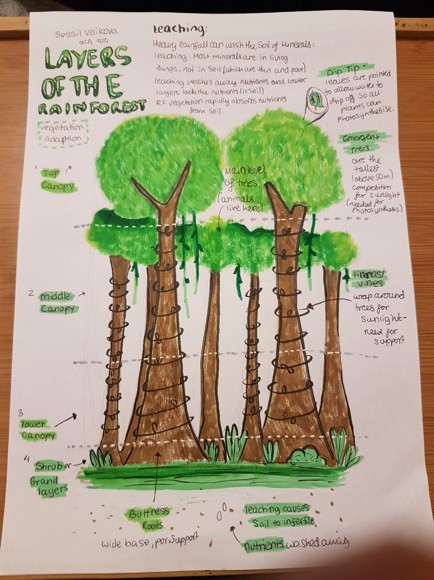 LAYERS
OF THE
RAINFOREST
vegetation
adaption
leaching:
Heavy rainfall can wash the soil of minerals.
leaching. Most minerals are in living
things, not in soil (which are thin and poor)
leaching washes away nutrients and lower
layers lack the nutrients (in soil)
RF vegetation rapidly absorbs nutrients
from soil.
Drip Tip -
leaves are pointed
to allow water to
drip off so all
plants can
photosynthesise.
Emergent
Trees
are the
tallest
(above 50m)
competition
for sunlight
(needed for
Photosynthesis)
1
Top
Canopy
Main level
of trees
(animals
live here)
2
Middle
Canopy
Lianas/
vines
wrap around
trees for
sunlight -
need for
support
3
lower
Canopy
4
Shrub
layers
Buttress
Roots
wide base, for support
leaching causes
Soil to infertile
nutrients washed away